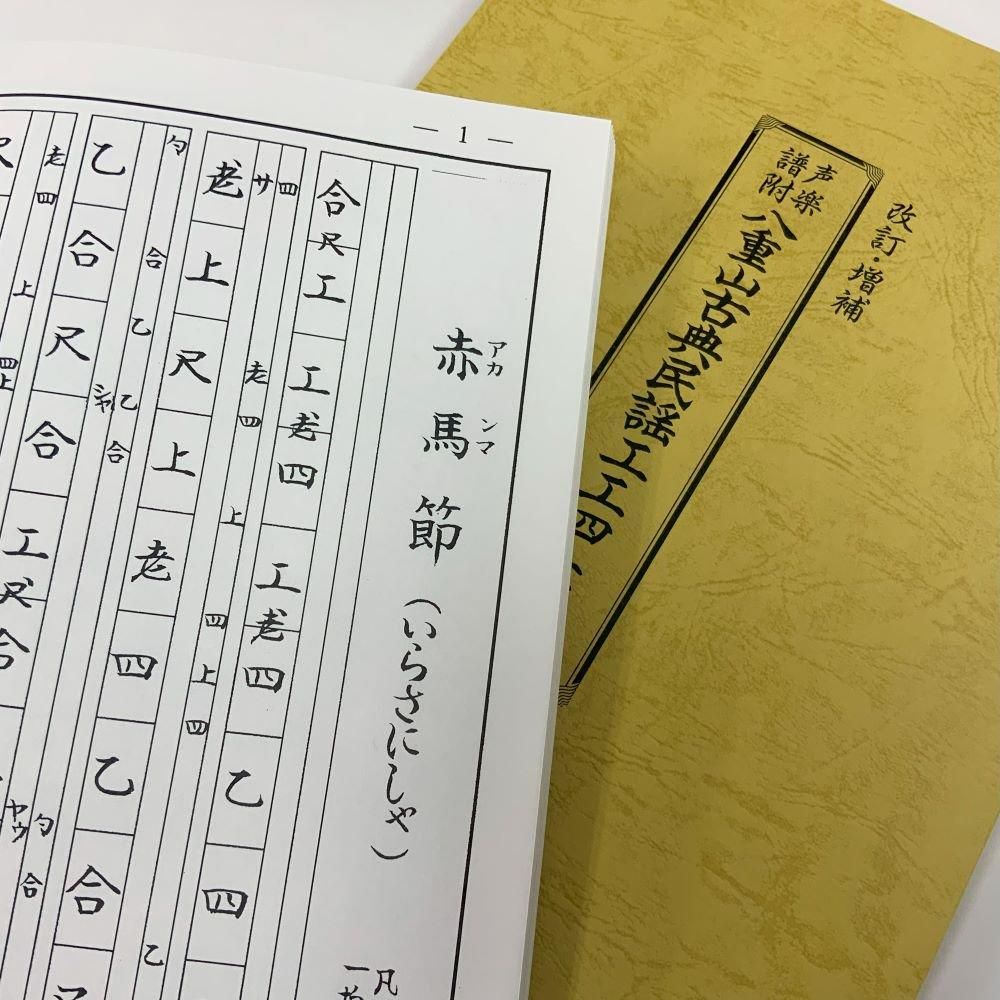 改訂・増補
声楽
譜附
八重山古典民謡工工四
— 1 —
アカ ンマ
赤馬節(いらさにしゃ)
凡
合尺工工老四工老四乙四
四老四上四上四乙
サ
老上尺上老四乙合尺
勺合乙乙合勺合
シャ ヤゥ
乙合尺合工尺合
老四上四上